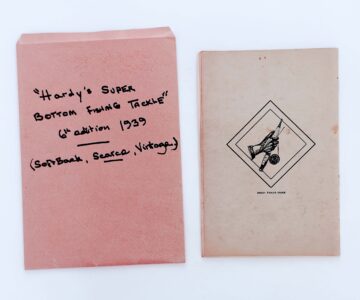 "Hardy's SUPER
BOTTOM FISHING TACKLE"
6th edition 1939
(SoftBack, Scarce, Vintage)